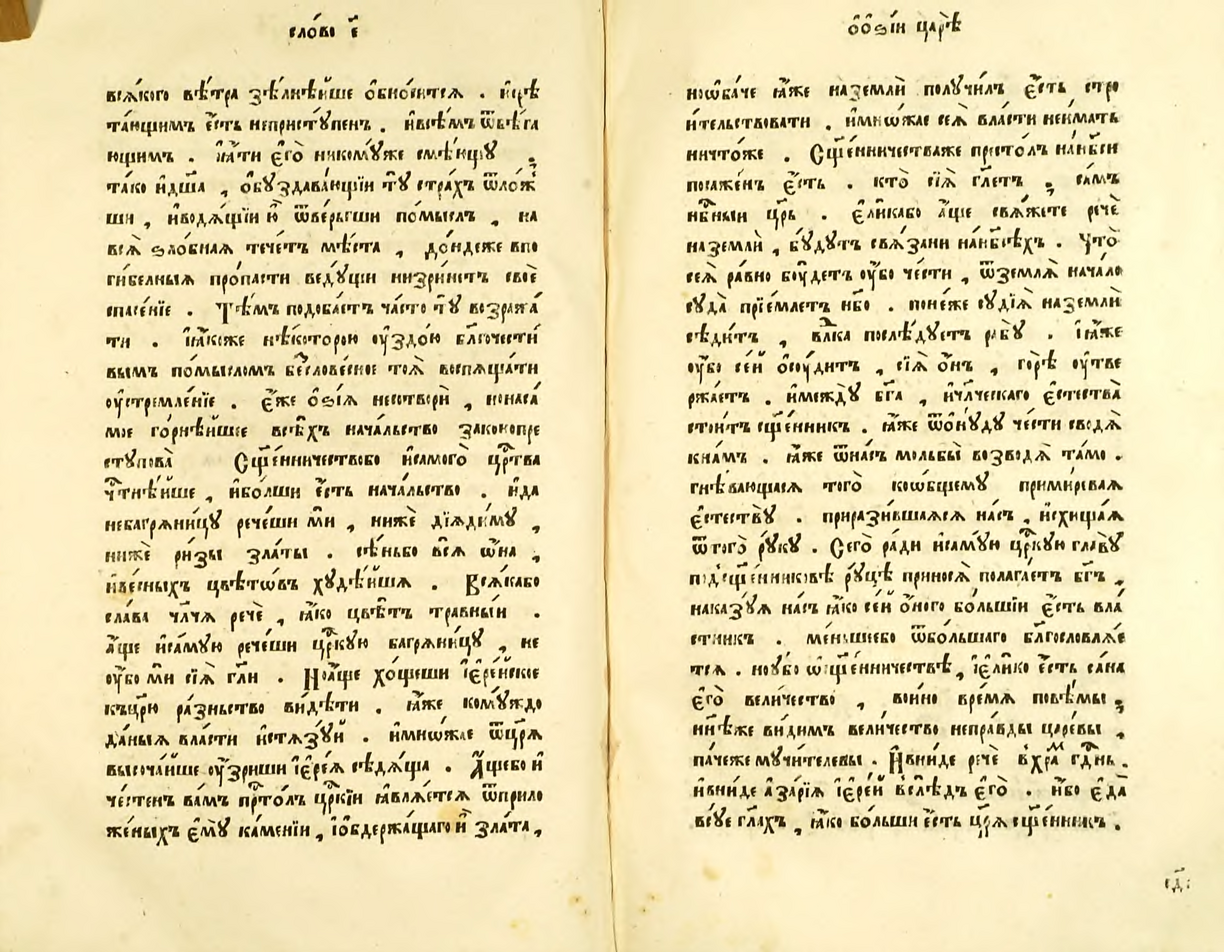 сло́во є҃
вся́кого вѣ́тра ѕѣлнѣ́йше ѡ҆бно́сится . и҆срѣ
та́ющимъ є҆́сть непристꙋ́пенъ . и҆всѣ́мъ ѿвѣ́га
ющимъ . ꙗ҆́ти є҆го̀ никомꙋ́же смѣ́ющꙋ ,
та́ко и҆дꙋша̀ , ѡ҆бꙋздава́ющїи тꙋ̀ стра́хъ ѿло́ж
ши , и҆водѧ́щїи ю҆̀ ѿве́ргши по́мыслъ , на
всѧ̀ ѕло́бнаѧ тече́тъ мѣ́ста , до́ндеже впо
ги́белныѧ про́пасти ведꙋ́щїи низри́нетъ своѐ
спасе́нїе . Тѣ́мъ подоба́етъ ча́сто тꙋ̀ возража́
ти . ꙗ҆́коже нѣ́которою ᲂу҆здо́ю бл҃гочести́
вымъ по́мысломъ бесловесное тоѧ̀ воспѧща́ти
ᲂу҆стремле́нїе . є҆́же ѻ҆ѕі́ѧ несотворѝ , ионаса́
мое го́рнѣйшее всѣ́хъ нача́льство законопре
стꙋпова̀ Сщ҃е́нничествобо и҆самого̀ црⷭ҇тва
чⷭ҇тнѣ́йше , и҆бо́лши є҆́сть нача́льство . и҆да
небагрѧни́цꙋ рече́ши мѝ , нижѐ дїѧди́мꙋ ,
нижѐ ри́зы зла́ты . сѣ́ньбо всѧ̀ ѡ҆на ,
и҆ве́сных цвѣ́товъ хꙋдѣ́йшѧ . Всѧ́кабо
сла́ва чл҃чѧ речѐ , ꙗ҆́ко цвѣ́тъ травны́й .
а҆́ще и҆са́мꙋю рече́ши црⷭ҇кꙋю багрѧни́цꙋ , не
ᲂу҆́бо мѝ сїѧ̀ гл҃и . Ноа҆́ще хо́щеши і҆ере́йское
къцр҃ю ра́зньство ви́дѣти . ꙗ҆́же комꙋ́ждо
да́ныѧ вла́сти и҆стѧзꙋ́й . и҆мно́жае ѿцр҃ѧ
высоча́йше ᲂу҆́зриши і҆ере́ѧ сѣдѧ́ща . А҆́щебо и҆
че́стенъ ва́мъ прⷭ҇то́лъ црⷭ҇кїи ꙗ҆влѧ́ется ѿприло
же́ныхъ є҆мꙋ̀ ка́менїи , і҆ѡ҆бдержа́щаго и҆̀ зла́та ,
ѡ҆ѻ҆ѕі́и царѐ
ноѡ҆ба́че ꙗ҆́же наземлѝ полꙋчи́лъ є҆́сть стро
и́тельствовати . и҆мно́жае сеѧ̀ вла́сти неи҆мать
ничто́же . Сщ҃е́нничестваже престо́лъ нанб҃си
посаже́нъ є҆́сть . кто̀ сїѧ̀ гл҃етъ , са́мъ
нбⷭ҇ныи цр҃ь . є҆ли́кабо а҆́ще свѧ́жете речѐ
наземлѝ , бꙋ́дꙋтъ свѧ́зани нанб҃сѣ́хъ . Что̀
сеѧ̀ ра́вно бꙋ́детъ ᲂу҆́бо че́сти , ѿземлѧ̀ нача́ло
сꙋда̀ прїе́млетъ нб҃о . поне́же сꙋдїѧ̀ наземлѝ
сѣди́тъ , влⷣка послѣ́дꙋетъ рабꙋ̀ . і҆ꙗ҆́же
ᲂу҆́бо се́й ѡ҆сꙋ́дитъ , сїѧ̀ ѻ҆́нъ , горѣ̀ ᲂу҆тве
ржа́етъ . и҆ме́ждꙋ бг҃а , и҆чл҃ческаго є҆стества̀
стои́тъ сщ҃е́нникъ . ꙗ҆́же ѿѻ҆нꙋ́дꙋ че́сти сводѧ̀
кна́мъ . ꙗ҆́же ѿна́съ мольбы̀ возводѧ̀ та́мо .
гнѣ́вающаѧся того̀ коо́бщемꙋ примирѧ́ѧ
є҆стествꙋ̀ . прирази́вшаѧся на́съ , и҆схища́ѧ
ѿтого̀ рꙋкꙋ̀ . Сего̀ ра́ди и҆са́мꙋю црⷭ҇кꙋю главꙋ̀
пⷪ҇дсщ҃е́нниковѣ рꙋ́цѣ приносѧ̀ полага́етъ бг҃ъ ,
наказꙋ́ѧ на́съ ꙗ҆́ко се́й ѻ҆́ного бо́льшїи є҆́сть вла́
стникъ . ме́ньшеебо ѿбо́льшаго бл҃гословлѧ́е
тся . ноᲂу҆́бо ѡ҆сщ҃е́нничествѣ , і҆є҆ли́ко є҆́сть са́на
є҆го̀ вели́чество , воино вре́мѧ повѣ́мы ,
нн҃ѣже ви́димъ вели́чество непра́вды царе́вы ,
па́чеже мꙋчи́телевы . И҆вни́де речѐ вхра́мъ гдⷭ҇нь .
и҆вни́де а҆за́рїѧ і҆ере́й вслѣ́дъ є҆го̀ . и҆́бо є҆да̀
всꙋ́е гл҃ахъ , ꙗ҆́ко бо́льши є҆́сть цр҃ѧ сщ҃е́нникъ .